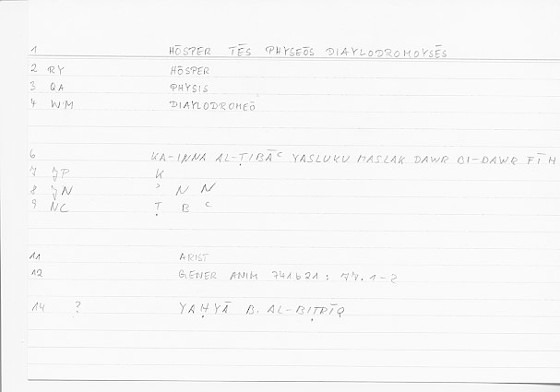 1 HŌSPER TĒS PHYSEŌS DIAYLODROMOYSĒS
2 RY HŌSPER
3 QA PHYSIS
4 WM DIAYLODROMEŌ
6 KA-INNA AL-ṬIBĀᶜ YASLUKU MASLAK DAWR BI-DAWR FĪH
7 JP K
8 JN ᵓ N N
9 NC Ṭ B ᶜ
11 ARIST
12 GENER ANIM 741b21: 77.1-2
14 ? YAḤYĀ B. AL-BIṬRĪQ